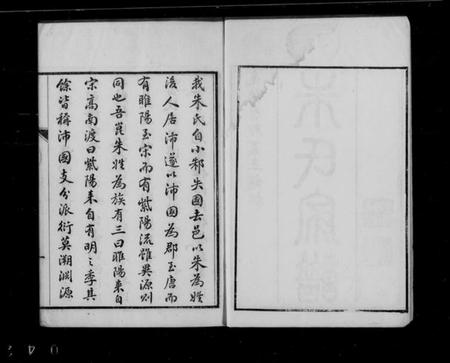 我朱氏自小邾失國去邑以朱為姓
後人居沛遂以沛國為郡至唐而
有睢陽至宋而有紫陽流雖異源則
同也吾崑朱姓為族有三曰睢陽來自
宋高南渡曰紫陽來自有明之季其
餘皆稱沛國支分派衍莫溯淵源